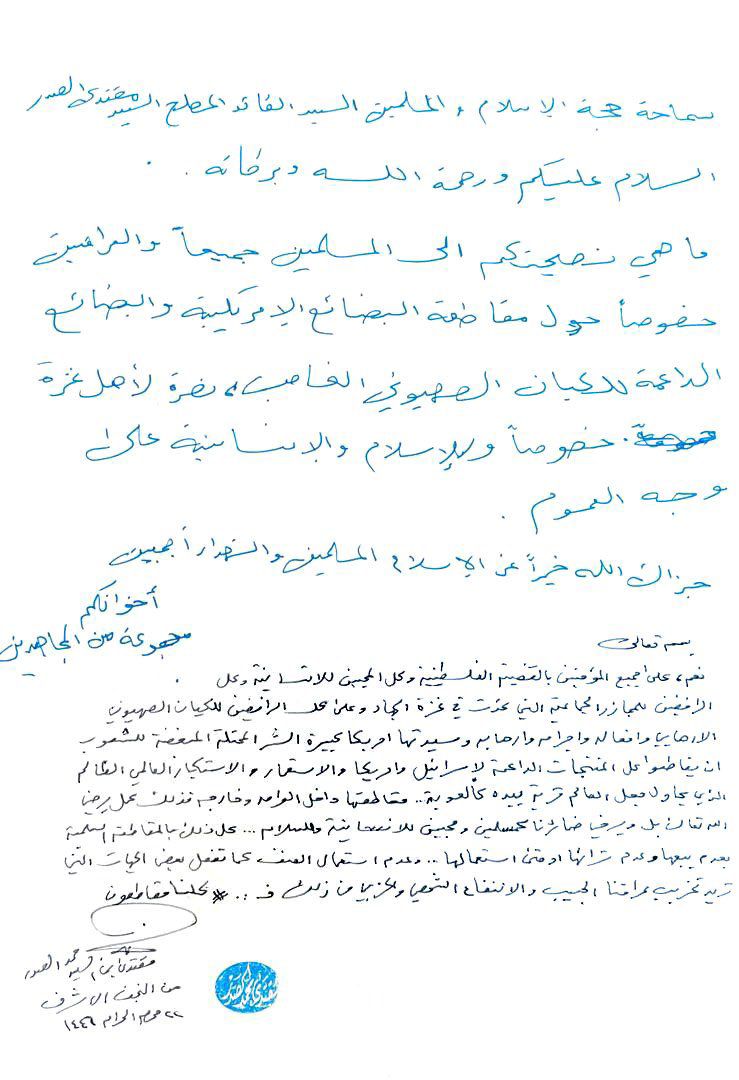 سماحة حجة الإسلام و المسلمين السيد القائد المصلح السيد مقتدى الصدر
السلام عليكم ورحمة اللـه وبركاته .
ما هي نصيحتكم الى المسلمين جميعاً والعراقيين
خصوصاً حول مقاطعة البضائع الامريكية والبضائع
الداعمة للكيان الصهيوني الغاصب، نصرة لأهل غزة
خصوصاً وللإسلام والإنسانية على
وجه العموم .
جزاك الله خيراً عن الإسلام المسلمين والشهداء أجمعين
أخوانكم
مجموعة من المجاهدين
بسمه تعالى
نعم، على جميع المؤمنين بالقضية الفلسطينية وكل المحبين للانسانية وكل
الرافضين للمجازر الجماعية التي حدثت في غزة الجهاد وعلى كل الرافضين للكيان الصهيوني
الارهابي وافعاله واجرامه وارهابه وسيدتها امريكا كبيرة الشر المحتلة المبغضة للشعوب
ان يقاطعوا كل المنتجات الداعمة لإسرائيل وامريكا والاستعمار والاستكبار العالمي الظالم
الذي يحاول جعل العالم قرية بيده كألعوبة .. مقاطعتها داخل العراق وخارجه فذلك عمل يرضي
الله تعالى بل ويرضي ضمائرنا كمسلمين ومحبين للانسانية وللسلام ... كل ذلك بالمقاطعة السلمية
بعدم بيعها وعدم شرائها او حتى استعمالها .. وعدم استعمال العنف كما تفعل بعض الجهات التي
تريد تخريب عراقنا الحبيب والانتفاع الشخصي والحزبي من ذلك فـ .. # كلنا مقاطعون
مقتدى ابن السيد محمد الصدر
من النجف الاشرف
٢٢ محرم الحرام ١٤٤٦